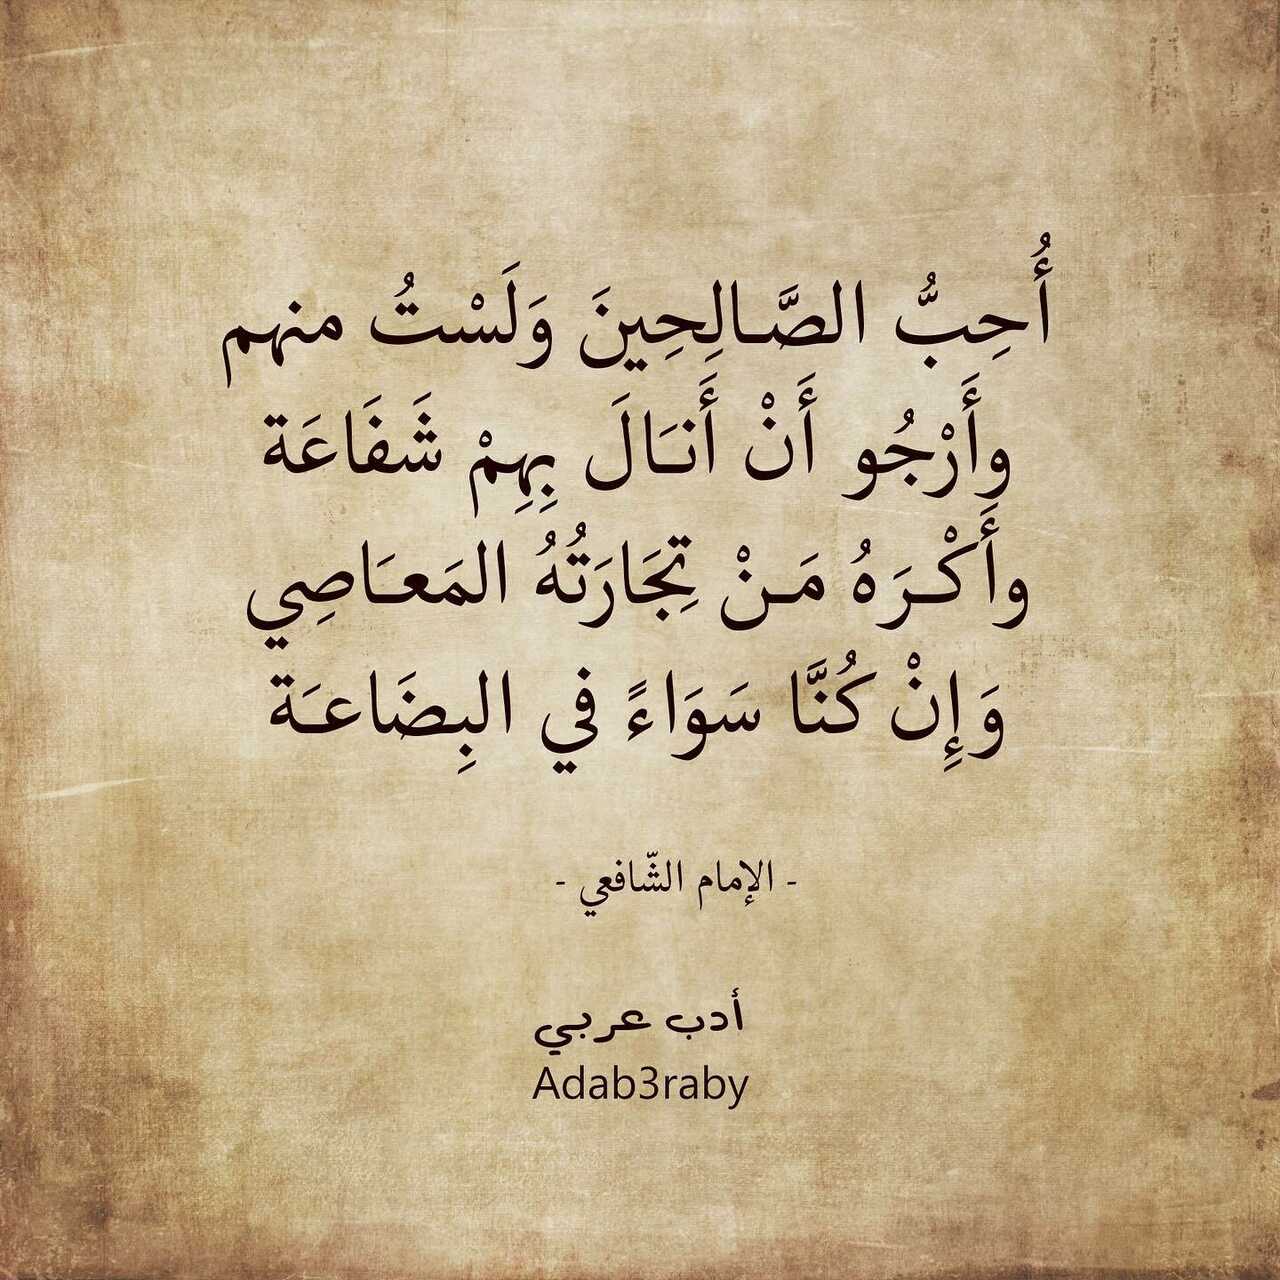 أُحِبُّ الصَّـالِحِينَ وَلَسْتُ منهم
وأَرْجُو أَنْ أَنـَالَ بِهِمْ شَفَاعَة
وأَكْـرَهُ مَـنْ تِجَارَتُهُ المَعـَاصِي
وَإِنْ كُنَّا سَوَاءً في البِضَاعـَة
- الإمام الشّافعي -
أدب عربي
Adab3raby